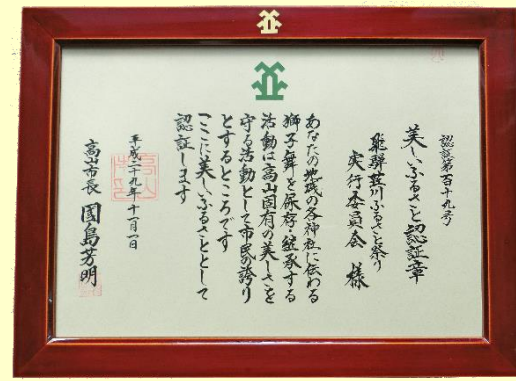 認証第百十九号
美しいふるさと認証章
飛騨荘川ふるさと祭り
実行委員会 様
あなたの地域の各神社に伝わる
獅子舞を保存・継承する
活動は高山固有の美しさを
守る活動として市民の誇り
とするところです
ここに美しいふるさととして
認証します
平成二十九年十一月一日
高山市長 國島芳明